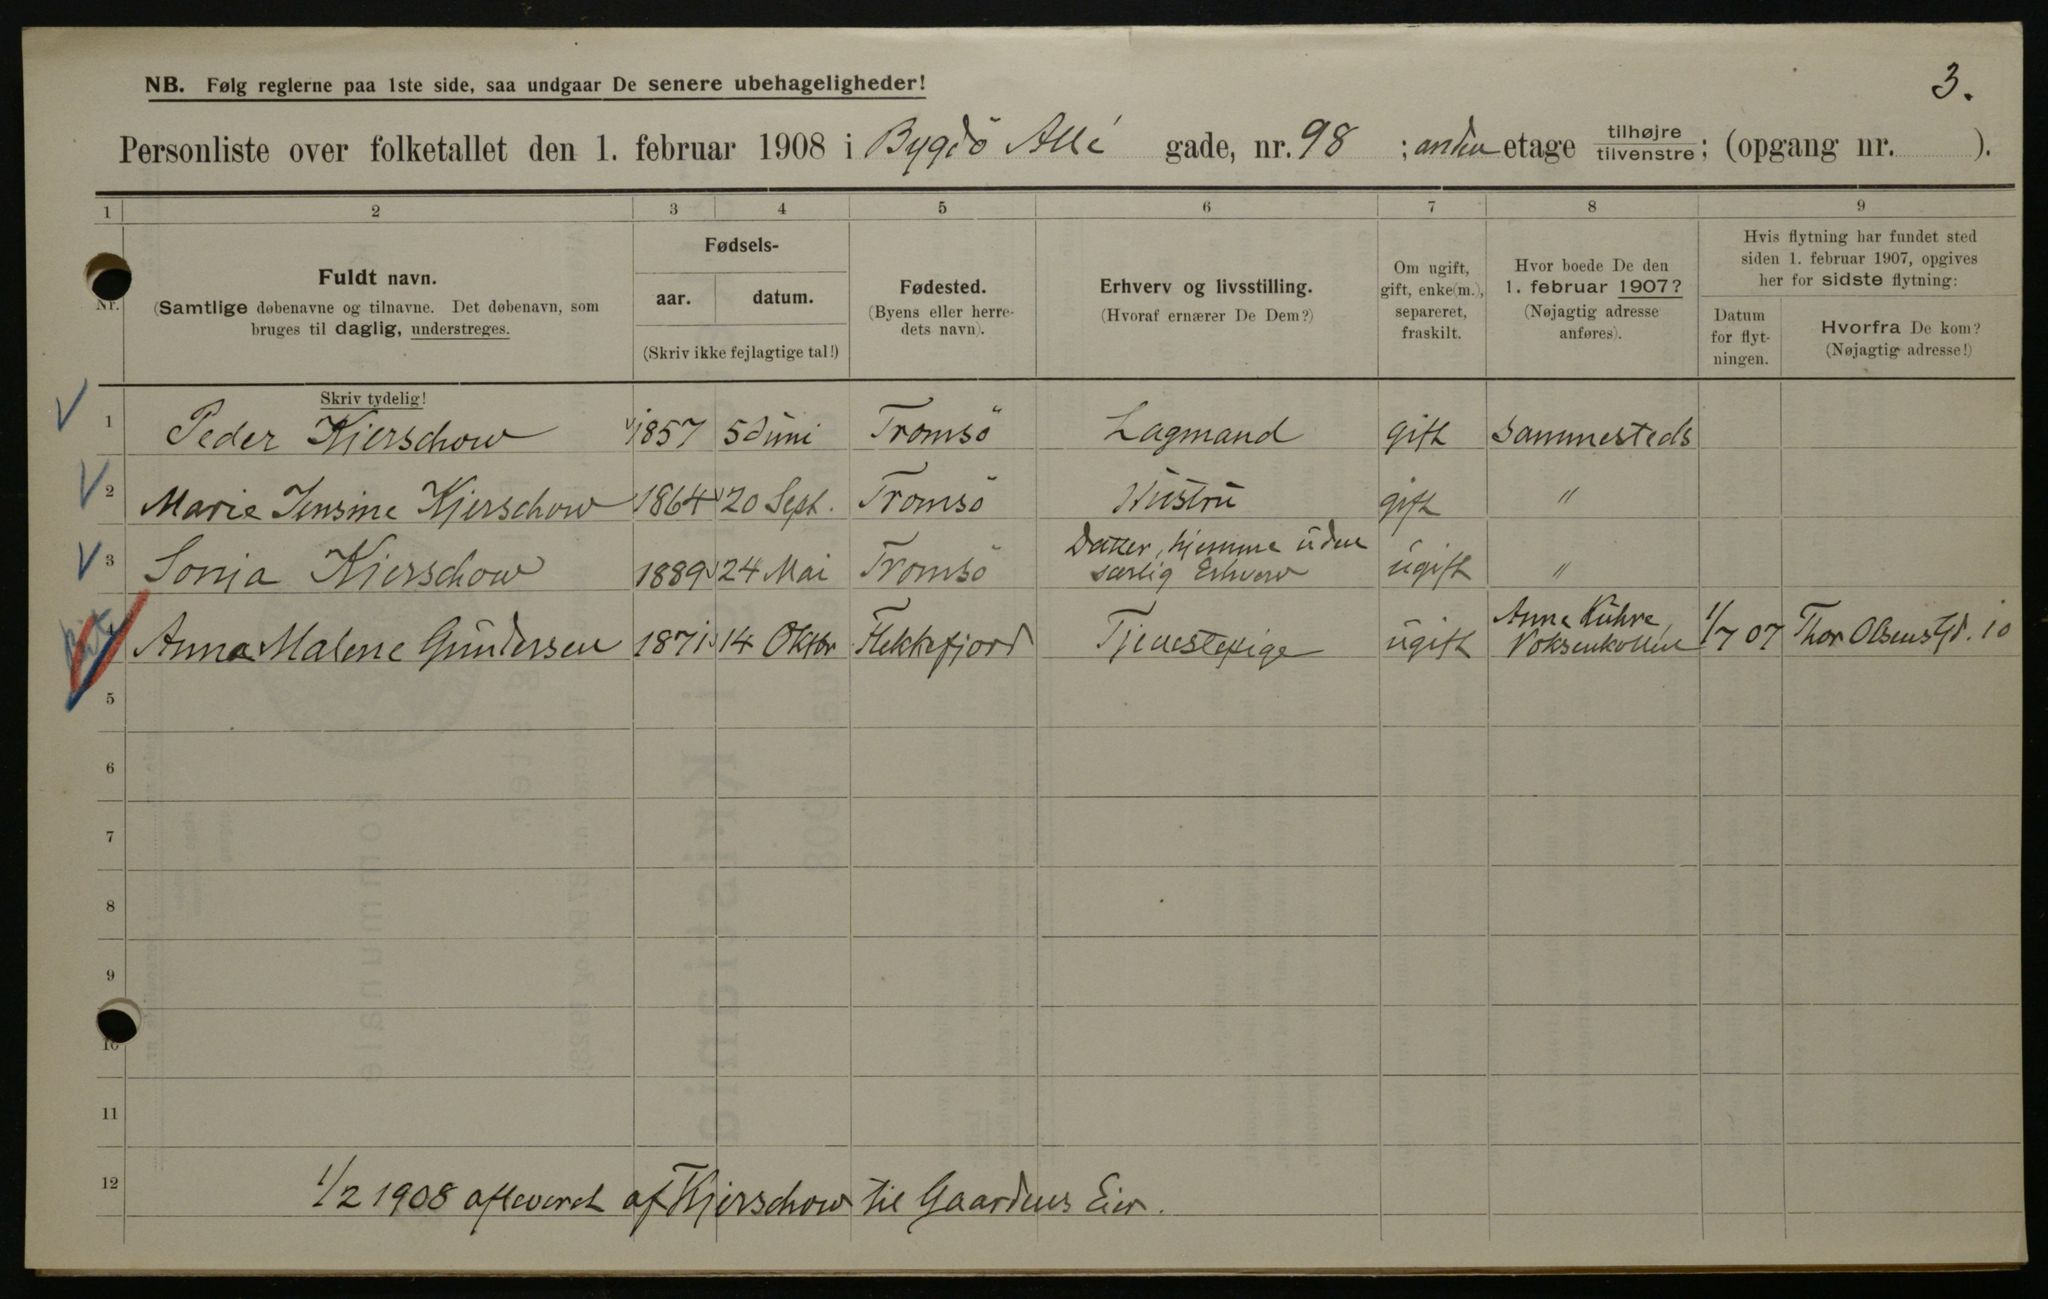 3.
NB. Følg reglerne paa 1ste side, saa undgaar De senere ubehageligheder!
Personliste over folketallet den 1. februar 1908 i Bygdö Allé gade, nr. 98 ; anden etage tilhøjre tilvenstre; (opgang nr. ).
1 2 3 4 5 6 7 8 9
Nr.
Fuldt navn.
(Samtlige døbenavne og tilnavne. Det døbenavn, som
bruges til daglig, understreges.
Skriv tydelig!
Fødsels-
aar. datum.
(Skriv ikke fejlagtige tal!)
Fødested.
(Byens eller herre-
dets navn).
Erhverv og livsstilling.
(Hvoraf ernærer De Dem?)
Om ugift,
gift, enke(m.),
separeret,
fraskilt.
Hvor boede De den
1. februar 1907?
(Nøjagtig adresse
anføres).
Hvis flytning har fundet sted
siden 1. februar 1907, opgives
her for sidste flytning:
Datum
for flyt-
ningen.
Hvorfra De kom?
(Nøjagtig adresse!)
1 Peder Kjerschow 1857 5 Juni Tromsö Lagmand gift Sammesteds
2 Marie Jensine Kjerschow 1864 20 Sept. Tromsö Hustru gift "
3 Sonja Kjerschow 1889 24 Mai Tromsö Datter, hjemme uden særlig Erhverv ugift "
4 Anna Malene Gundersen 1871 14 Oktbr Flekkefjord Tjenestepige ugift Anne Kuhre, Voksenkollen 1/7 07 Thor Olsens Gd. 10
5
6
7
8
9
10
11
12
1/2 1908 afleveret af Kjerschow til Gaardens Eier.